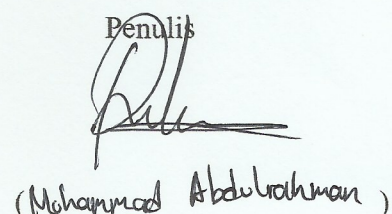 Penulis
(Mohammad Abdulrahman)